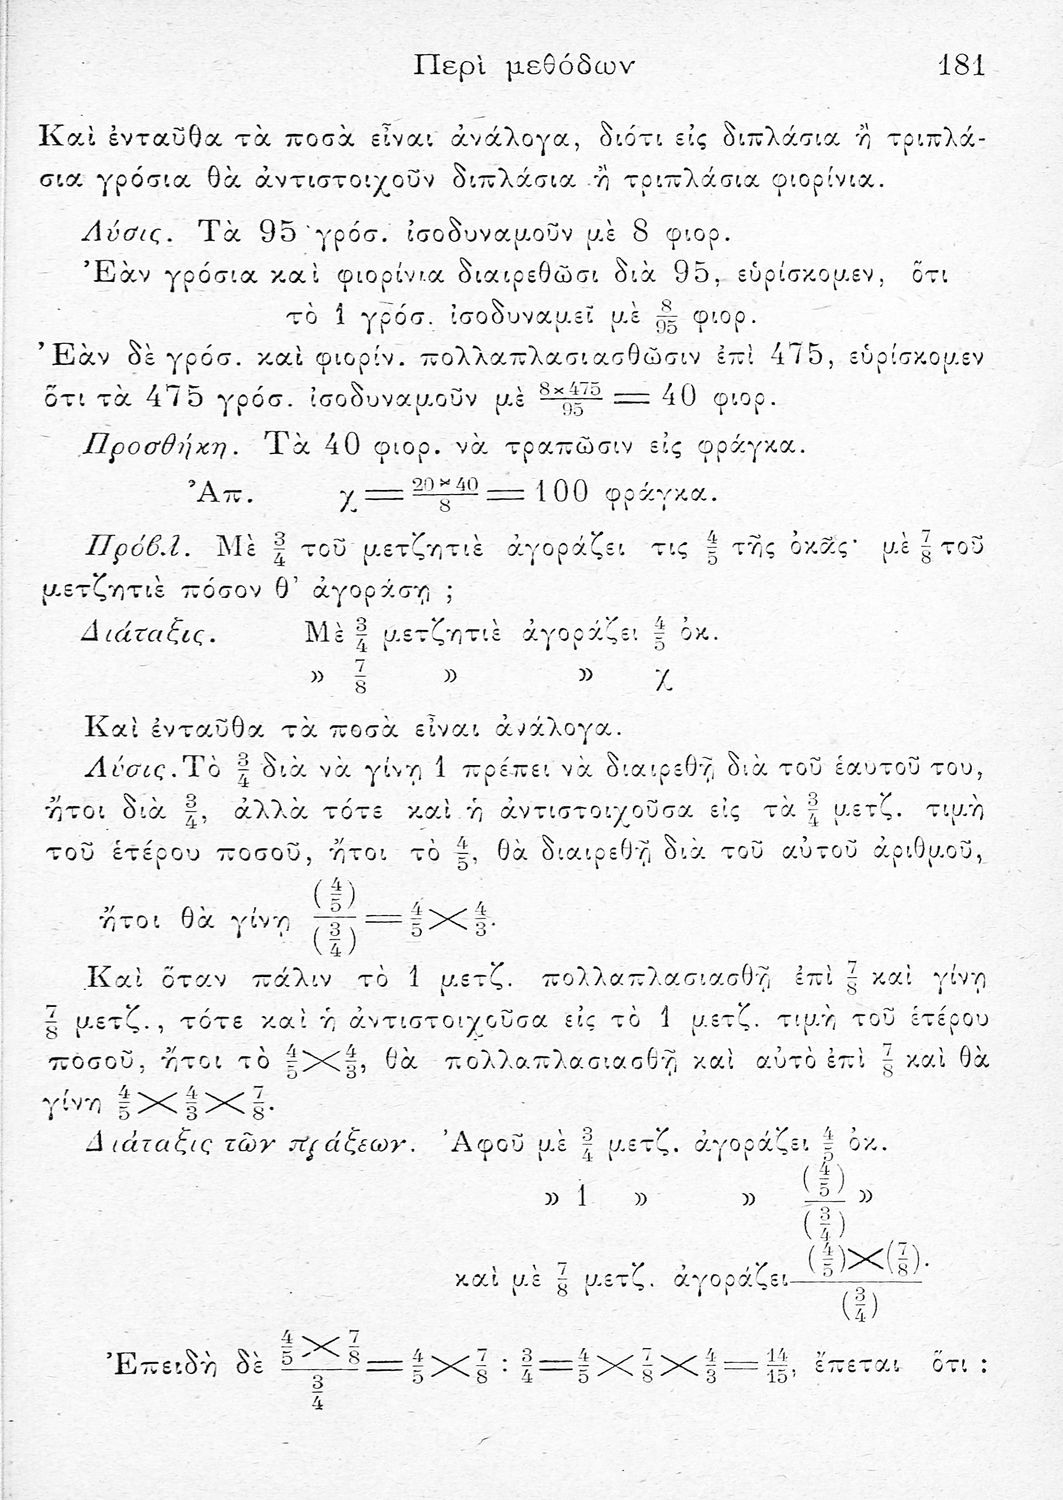 Περὶ μεθόδων 181
Καὶ ἐνταῦθα τὰ ποσὰ εἶναι ἀνάλογα, διότι εἰς διπλάσια ἢ τριπλά-
σια γρόσια θὰ ἀντιστοιχοῦν διπλάσια ἢ τριπλάσια φιορίνια.
Λύσις. Τὰ 95 γρόσ. ἰσοδυναμοῦν μὲ 8 φιορ.
Ἐὰν γρόσια καὶ φιορίνια διαιρεθῶσι διὰ 95, εὑρίσκομεν, ὅτι
τὸ 1 γρόσ. ἰσοδυναμεῖ μὲ 8/95 φιορ.
Ἐὰν δὲ γρόσ. καὶ φιορίν. πολλαπλασιασθῶσιν ἐπὶ 475, εὑρίσκομεν
ὅτι τὰ 475 γρόσ. ἰσοδυναμοῦν μὲ 8×475/95 = 40 φιορ.
Προσθήκη. Τὰ 40 φιορ. νὰ τραπῶσιν εἰς φράγκα.
Ἀπ. χ = 20×40/8 = 100 φράγκα.
Πρόβλ. Μὲ 3/4 τοῦ μετζητιὲ ἀγοράζει τις 4/5 τῆς ὀκᾶς· μὲ 7/8 τοῦ
μετζητιὲ πόσον θ' ἀγοράσῃ ;
Διάταξις. Μὲ 3/4 μετζητιὲ ἀγοράζει 4/5 ὀκ.
» 7/8 » » χ
Καὶ ἐνταῦθα τὰ ποσὰ εἶναι ἀνάλογα.
Λύσις. Τὸ 3/4 διὰ νὰ γίνῃ 1 πρέπει νὰ διαιρεθῇ διὰ τοῦ ἑαυτοῦ του,
ἤτοι διὰ 3/4, ἀλλὰ τότε καὶ ἡ ἀντιστοιχοῦσα εἰς τὰ 3/4 μετζ. τιμὴ
τοῦ ἑτέρου ποσοῦ, ἤτοι τὸ 4/5, θὰ διαιρεθῇ διὰ τοῦ αὐτοῦ ἀριθμοῦ,
ἤτοι θὰ γίνῃ (4/5)/(3/4) = 4/5 × 4/3.
Καὶ ὅταν πάλιν τὸ 1 μετζ. πολλαπλασιασθῇ ἐπὶ 7/8 καὶ γίνῃ
7/8 μετζ., τότε καὶ ἡ ἀντιστοιχοῦσα εἰς τὸ 1 μετζ. τιμὴ τοῦ ἑτέρου
ποσοῦ, ἤτοι τὸ 4/5 × 4/3, θὰ πολλαπλασιασθῇ καὶ αὐτὸ ἐπὶ 7/8 καὶ θὰ
γίνῃ 4/5 × 4/3 × 7/8.
Διάταξις τῶν πράξεων. Ἀφοῦ μὲ 3/4 μετζ. ἀγοράζει 4/5 ὀκ.
» 1 » » (4/5)/(3/4) »
καὶ μὲ 7/8 μετζ. ἀγοράζει (4/5)×(7/8)/(3/4).
Ἐπειδὴ δὲ 4/5 × 7/8 / 3/4 = 4/5 × 7/8 : 3/4 = 4/5 × 7/8 × 4/3 = 14/15, ἕπεται ὅτι :